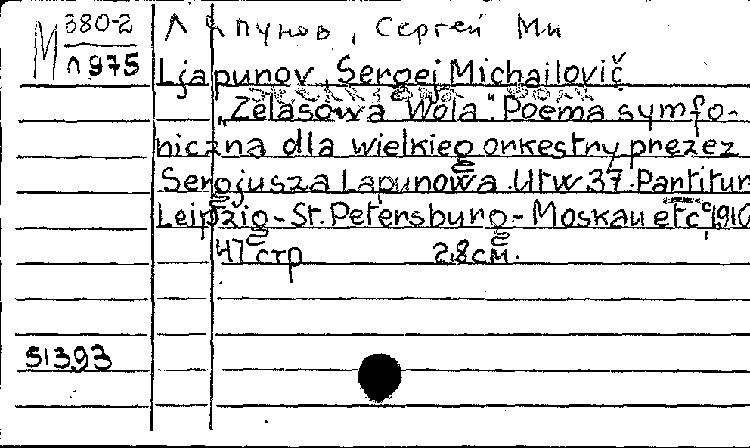 М 380-2
Л 975
Ляпунов, Сергей Ми
Ljapunov, Sergej Michailovič
„Zelasowa Wola". Poema symfo-
niczna dla wielkieg orkestry prezez
Sergjusza Lapunowa. Utw 37. Partitur
Leipzig - St. Petersburg - Moskau etc, 1910
47 стр 28 см.
51393